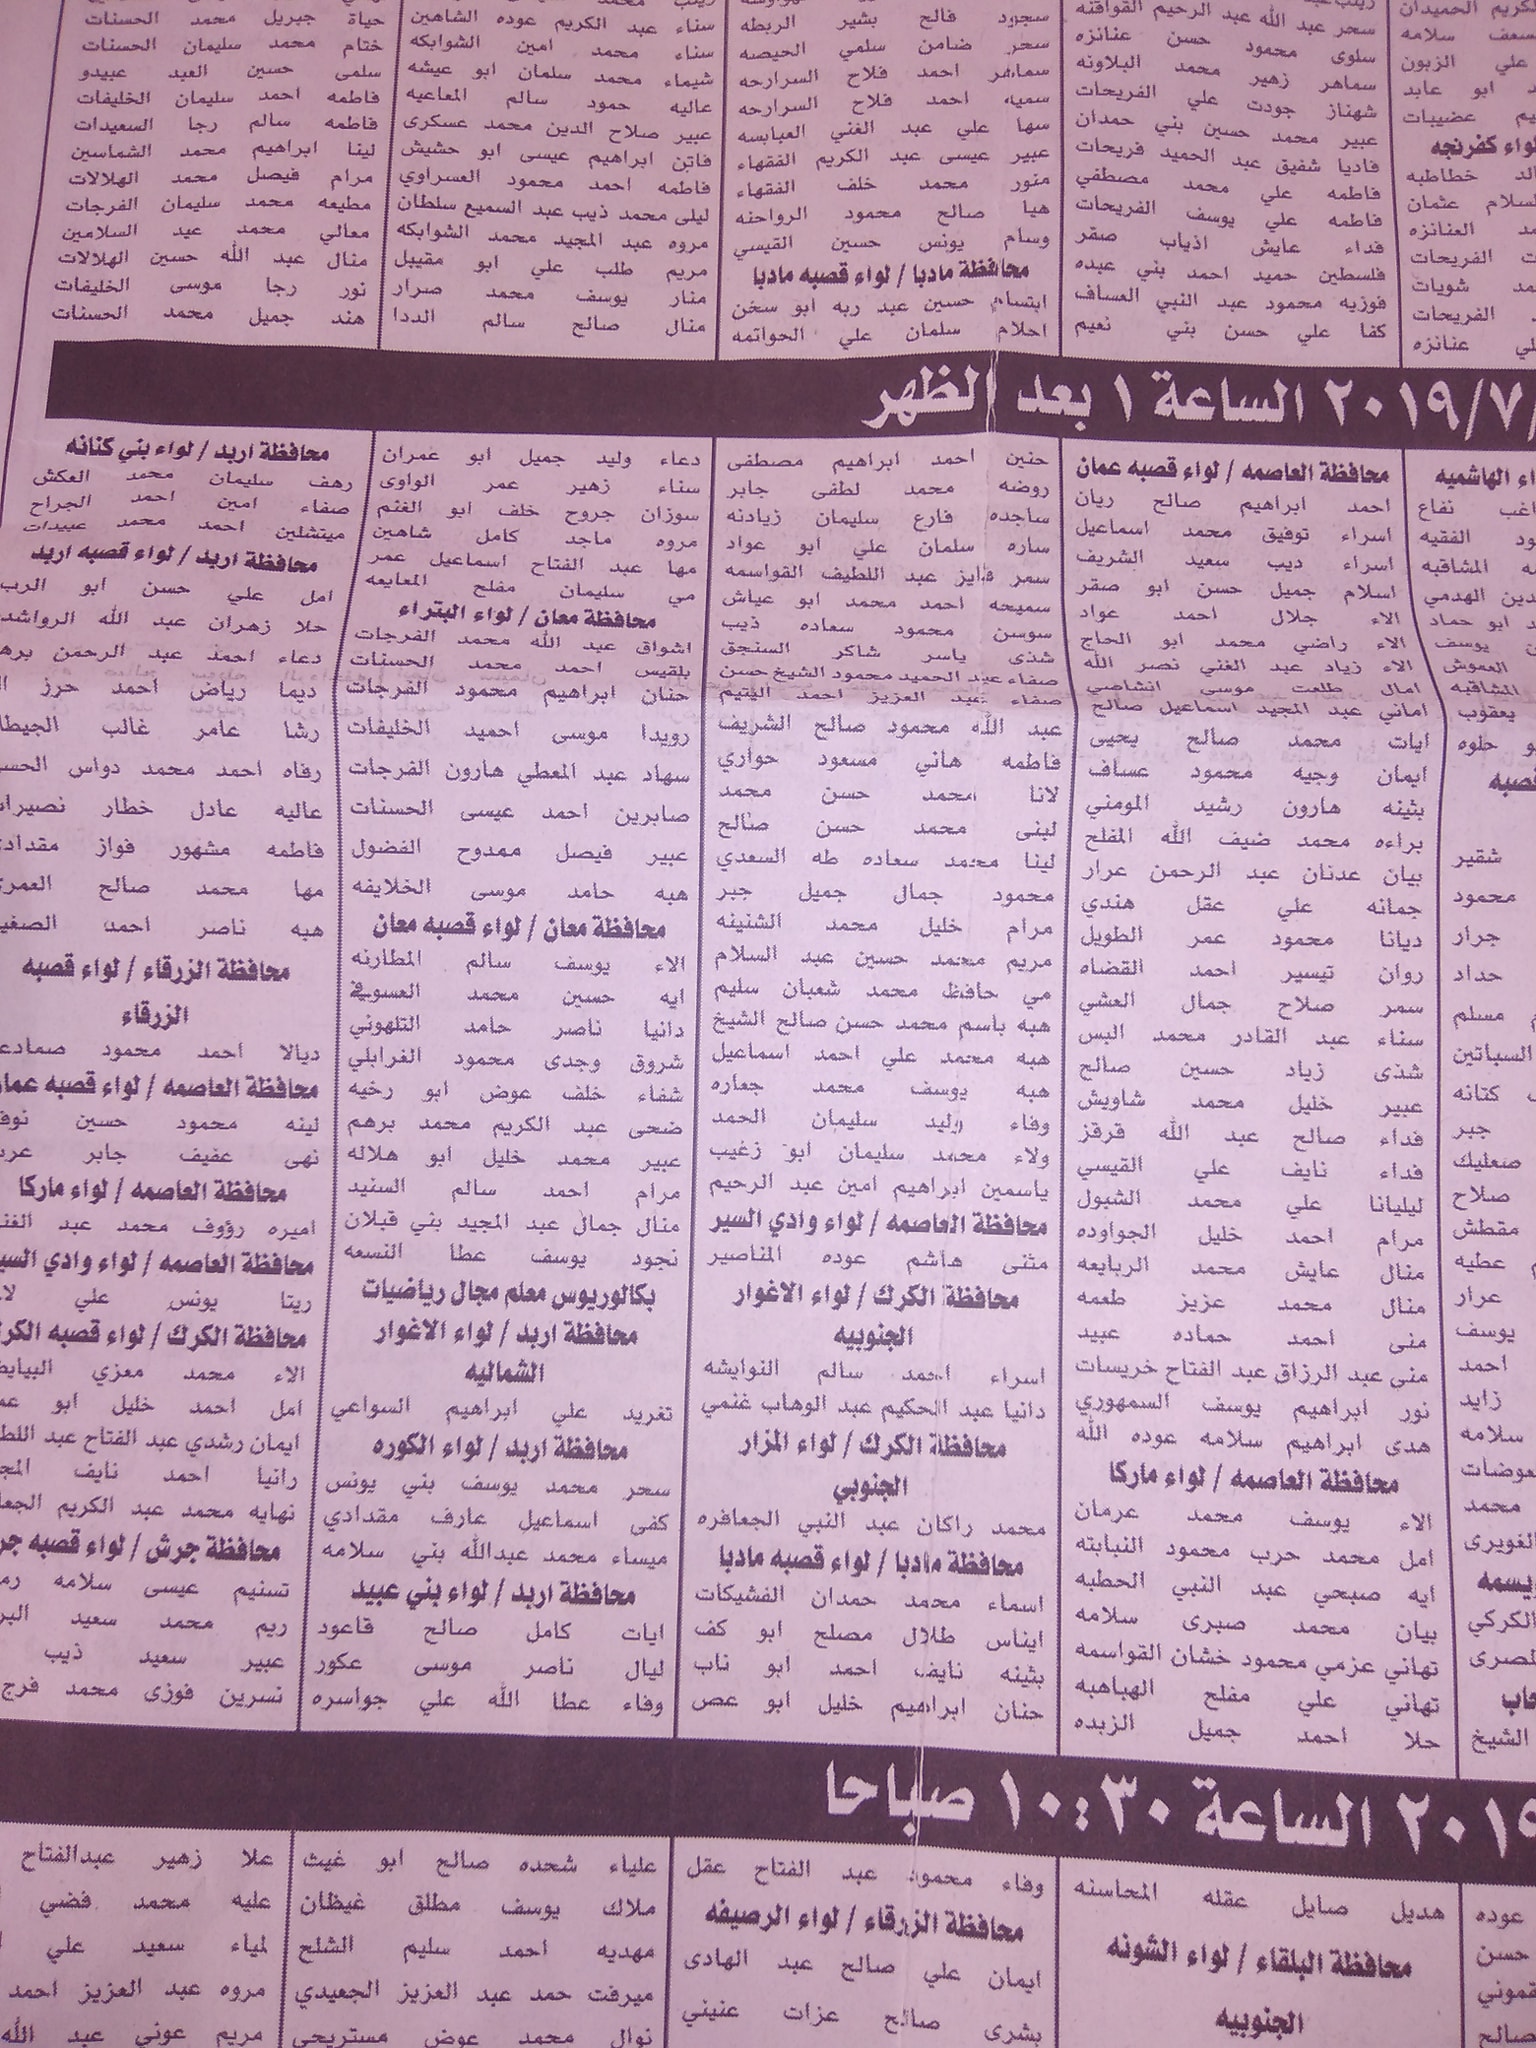 سجود فالح بشير الربطه
سحر ضامن سلمي الحيصه
سماهر احمد فلاح السرارحه
سميه احمد فلاح السرارحه
سها علي عبد الغني العبابسه
عبير عيسى عبد الكريم الفقهاء
منور محمد خلف الفقهاء
هيا صالح محمود الرواحنه
وسام يونس حسين القيسي
محافظة مادبا / لواء قصبه مادبا
ابتسام حسين عبد ربه ابو سخن
احلام سلمان علي الحواتمه
سحر عبد الله عبد الرحيم القواقنه
سلوى محمود حسن عنانزه
سماهر زهير محمد البلاونه
شهناز جودت علي الفريحات
عبير محمد حسين بني حمدان
فاديا شفيق عبد الحميد فريحات
فاطمه علي محمد مصطفي
فاطمه علي يوسف الفريحات
فداء عايش اذياب صقر
فلسطين حميد احمد بني عبده
فوزيه محمود عبد النبي العساف
كفا علي حسن بني نعيم
سناء عبد الكريم عوده الشاهين
سناء محمد امين الشوابكه
شيماء محمد سلمان ابو عيشه
عاليه حمود سالم المعاعيه
عبير صلاح الدين محمد عسكرى
فاتن ابراهيم عيسى ابو حشيش
فاطمه احمد محمود العسراوي
ليلى محمد ذيب عبد السميع سلطان
مروه عبد المجيد محمد الشوابكه
مريم طلب علي ابو مقيبل
منار يوسف محمد صرار
منال صالح سالم الددا
حياة جبريل محمد الحسنات
ختام محمد سليمان الحسنات
سلمى حسين العبد عبيدو
فاطمه احمد سليمان الخليفات
فاطمه سالم رجا السعيدات
لينا ابراهيم محمد الشماسين
مرام فيصل محمد الهلالات
مطيعه محمد سليمان الفرجات
معالي محمد عيد السلامين
منال عبد الله حسين الهلالات
نور رجا موسى الخليفات
هند جميل محمد الحسنات
٢٠١٩/٧/ الساعة ١ بعد الظهر
محافظة العاصمه / لواء قصبه عمان
احمد ابراهيم صالح ريان
اسراء توفيق محمد اسماعيل
اسراء ديب سعيد الشريف
اسلام جميل حسن ابو صقر
الاء جلال احمد عواد
الاء راضي محمد ابو الحاج
الاء زياد عبد الغني نصر الله
امال طلعت موسى انشاصي
اماني عبد المجيد اسماعيل صالح
ايات محمد صالح يحيى
ايمان وجيه محمود عساف
بثينه هارون رشيد المومني
براءه محمد ضيف الله المفلح
بيان عدنان عبد الرحمن عرار
جمانه علي عقل هندي
ديانا محمود عمر الطويل
روان تيسير احمد القضاه
سمر صلاح جمال العشي
سناء عبد القادر محمد البس
شذى زياد حسين صالح
عبير خليل محمد شاويش
فداء صالح عبد الله قرقز
فداء نايف علي القيسي
ليليانا علي محمد الشبول
مرام احمد خليل الجواوده
منال عايش محمد الربايعه
منال محمد عزيز طعمه
منى احمد حماده عبيد
منى عبد الرزاق عبد الفتاح خريسات
نور ابراهيم يوسف السمهوري
هدى ابراهيم سلامه عوده الله
محافظة العاصمه / لواء ماركا
الاء يوسف محمد عرمان
امل محمد حرب محمود النبابته
ايه صبحي عبد النبي الحطبه
بيان محمد صبرى سلامه
تهاني عزمي محمود خشان القواسمه
تهاني علي مفلح الهباهبه
حلا احمد جميل الزبده
حنين احمد ابراهيم مصطفى
روضه محمد لطفى جابر
ساجده فارع سليمان زيادنه
ساره سلمان علي ابو عواد
سمر فايز عبد اللطيف القواسمه
سميحه احمد محمد ابو عياش
سوسن محمود سعاده ذيب
شذى ياسر شاكر السنجق
صفاء عبد الحميد محمود الشيخ حسن
صفاء عبد العزيز احمد اليتيم
عبد الله محمود صالح الشريف
فاطمه هاني مسعود حواري
لانا محمد حسن محمد
لبنى محمد حسن صالح
لينا محمد سعاده طه السعدي
محمود جمال جميل جبر
مرام خليل محمد الشنينه
مريم محمد حسين عبد السلام
مي حافظ محمد شعبان سليم
هبه باسم محمد حسن صالح الشيخ
هبه محمد علي احمد اسماعيل
هبه يوسف محمد جعاره
وفاء وليد سليمان الحمد
ولاء محمد سليمان ابو زغيب
ياسمين ابراهيم امين عبد الرحيم
محافظة العاصمه / لواء وادي السير
مثنى هاشم عوده المناصير
محافظة الكرك / لواء الاغوار
الجنوبيه
اسراء احمد سالم النوايشه
دانيا عبد الحكيم عبد الوهاب غنمي
محافظة الكرك / لواء المزار
الجنوبي
محمد راكان عبد النبي الجعافره
محافظة مادبا / لواء قصبه مادبا
اسماء محمد حمدان الفشيكات
ايناس طلال مصلح ابو كف
بثينه نايف احمد ابو ناب
حنان ابراهيم خليل ابو عص
دعاء وليد جميل ابو عمران
سناء زهير عمر الواوى
سوزان جروح خلف ابو الغنم
مروه ماجد كامل شاهين
مها عبد الفتاح اسماعيل عمر
مي سليمان مفلح المعايعه
محافظة معان / لواء البتراء
اشواق عبد الله محمد الفرجات
بلقيس احمد محمد الحسنات
حنان ابراهيم محمود الفرجات
رويدا موسى احميد الخليفات
سهاد عبد المعطي هارون الفرجات
صابرين احمد عيسى الحسنات
عبير فيصل ممدوح الفضول
هبه حامد موسى الخلايفه
محافظة معان / لواء قصبه معان
الاء يوسف سالم المطارنه
ايه حسين محمد العسوفي
دانيا ناصر حامد التلهوني
شروق وجدى محمود الغرابلي
شفاء خلف عوض ابو رخيه
ضحى عبد الكريم محمد برهم
عبير محمد خليل ابو هلاله
مرام احمد سالم السنيد
منال جمال عبد المجيد بني قبلان
نجود يوسف عطا النسعه
بكالوريوس معلم مجال رياضيات
محافظة اربد / لواء الاغوار
الشماليه
تغريد علي ابراهيم السواعي
محافظة اربد / لواء الكوره
سحر محمد يوسف بني يونس
كفى اسماعيل عارف مقدادي
ميساء محمد عبدالله بني سلامه
محافظة اربد / لواء بني عبيد
ايات كامل صالح قاعود
ليال ناصر موسى عكور
وفاء عطا الله علي جواسره
محافظة اربد / لواء بني كنانه
رهف سليمان محمد العكش
صفاء امين احمد الجراح
ميتشلين احمد محمد عبيدات
محافظة اربد / لواء قصبه اربد
امل علي حسن ابو الرب
حلا زهران عبد الله الرواشده
دعاء احمد عبد الرحمن
ديما رياض احمد حرز
رشا عامر غالب
رفاه احمد محمد دواس
عاليه عادل خطار
فاطمه مشهور فواز مقدادي
مها محمد صالح العمري
هبه ناصر احمد
محافظة الزرقاء / لواء قصبه
الزرقاء
ديالا احمد محمود
محافظة العاصمه / لواء قصبه عمان
لينه محمود حسين
نهى عفيف جابر
محافظة العاصمه / لواء ماركا
اميره رؤوف محمد عبد
محافظة العاصمه / لواء وادي السير
ريتا يونس علي
محافظة الكرك / لواء قصبه الكرك
الاء محمد معزي
امل احمد خليل ابو
ايمان رشدي عبد الفتاح عبد
رانيا احمد نايف
نهايه محمد عبد الكريم
محافظة جرش / لواء قصبه
تسنيم عيسى سلامه
ريم محمد سعيد
عبير سعيد ذيب
نسرين فوزى محمد
٢٠١٩ الساعة ١٠:٣٠ صباحا
هديل صايل عقله المحاسنه
محافظة البلقاء / لواء الشونه
الجنوبيه
وفاء محمود عبد الفتاح عقل
محافظة الزرقاء / لواء الرصيفه
ايمان علي صالح عبد الهادى
بشرى صالح عزات عنيني
علياء شحده صالح ابو غيث
ملاك يوسف مطلق غيظان
مهديه احمد سليم الشلح
ميرفت حمد عبد العزيز الجعيدي
نوال محمد عوض مستريحي
علا زهير عبدالفتاح
عليه محمد فضي
لمياء سعيد علي
مروه عبد العزيز احمد
مريم عوني عبد الله